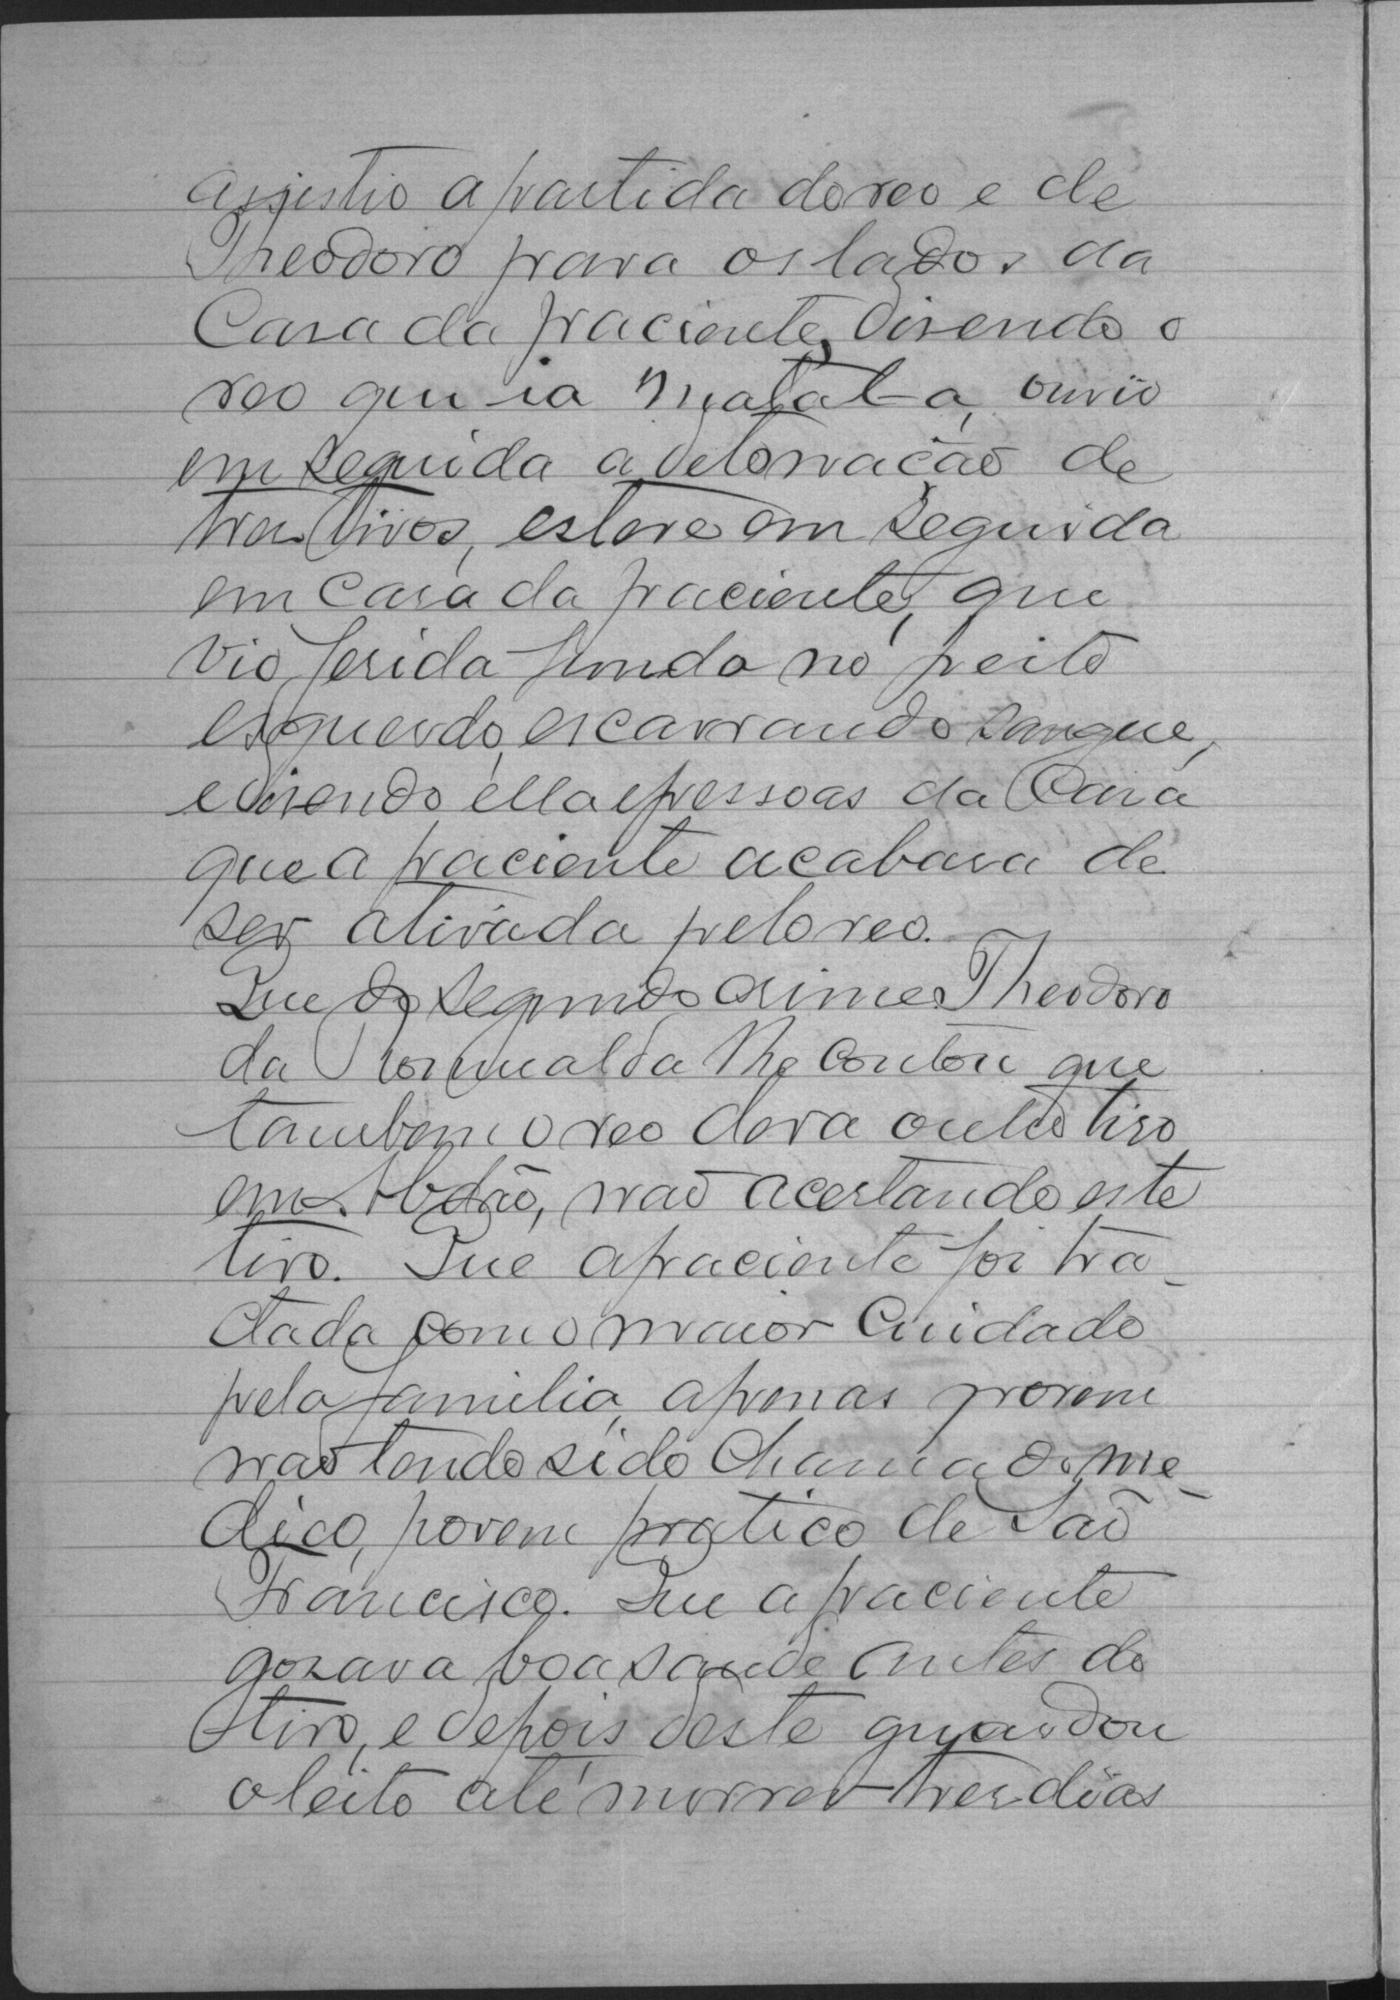 assistio a partida do reo e de
Theodoro para os lados da
Casa da paciente, disendo o
reo que ia matal-a, ouvio
em seguida a detonação de
tres tiros, esteve em seguida
em casa da paciente, que
vio ferida funda no peito
esquerdo, escarrando sangue,
e disendo ella e pessoas da Casa
que a paciente acabava de
ser atirada pelo reo.
Que do segundo crime Theodoro
da Romualda lhe contou que
tambem o reo dera outro tiro
em Abdão, não acertando este
tiro. Que a paciente foi tra-
ctada com o maior Cuidado
pela familia, apenas porem
não tendo sido chamado me-
dico, porem pratico de São
Francisco. Que a paciente
gosava boa saude antes do
tiro, e depois deste guardou
o leito até morrer tres dias